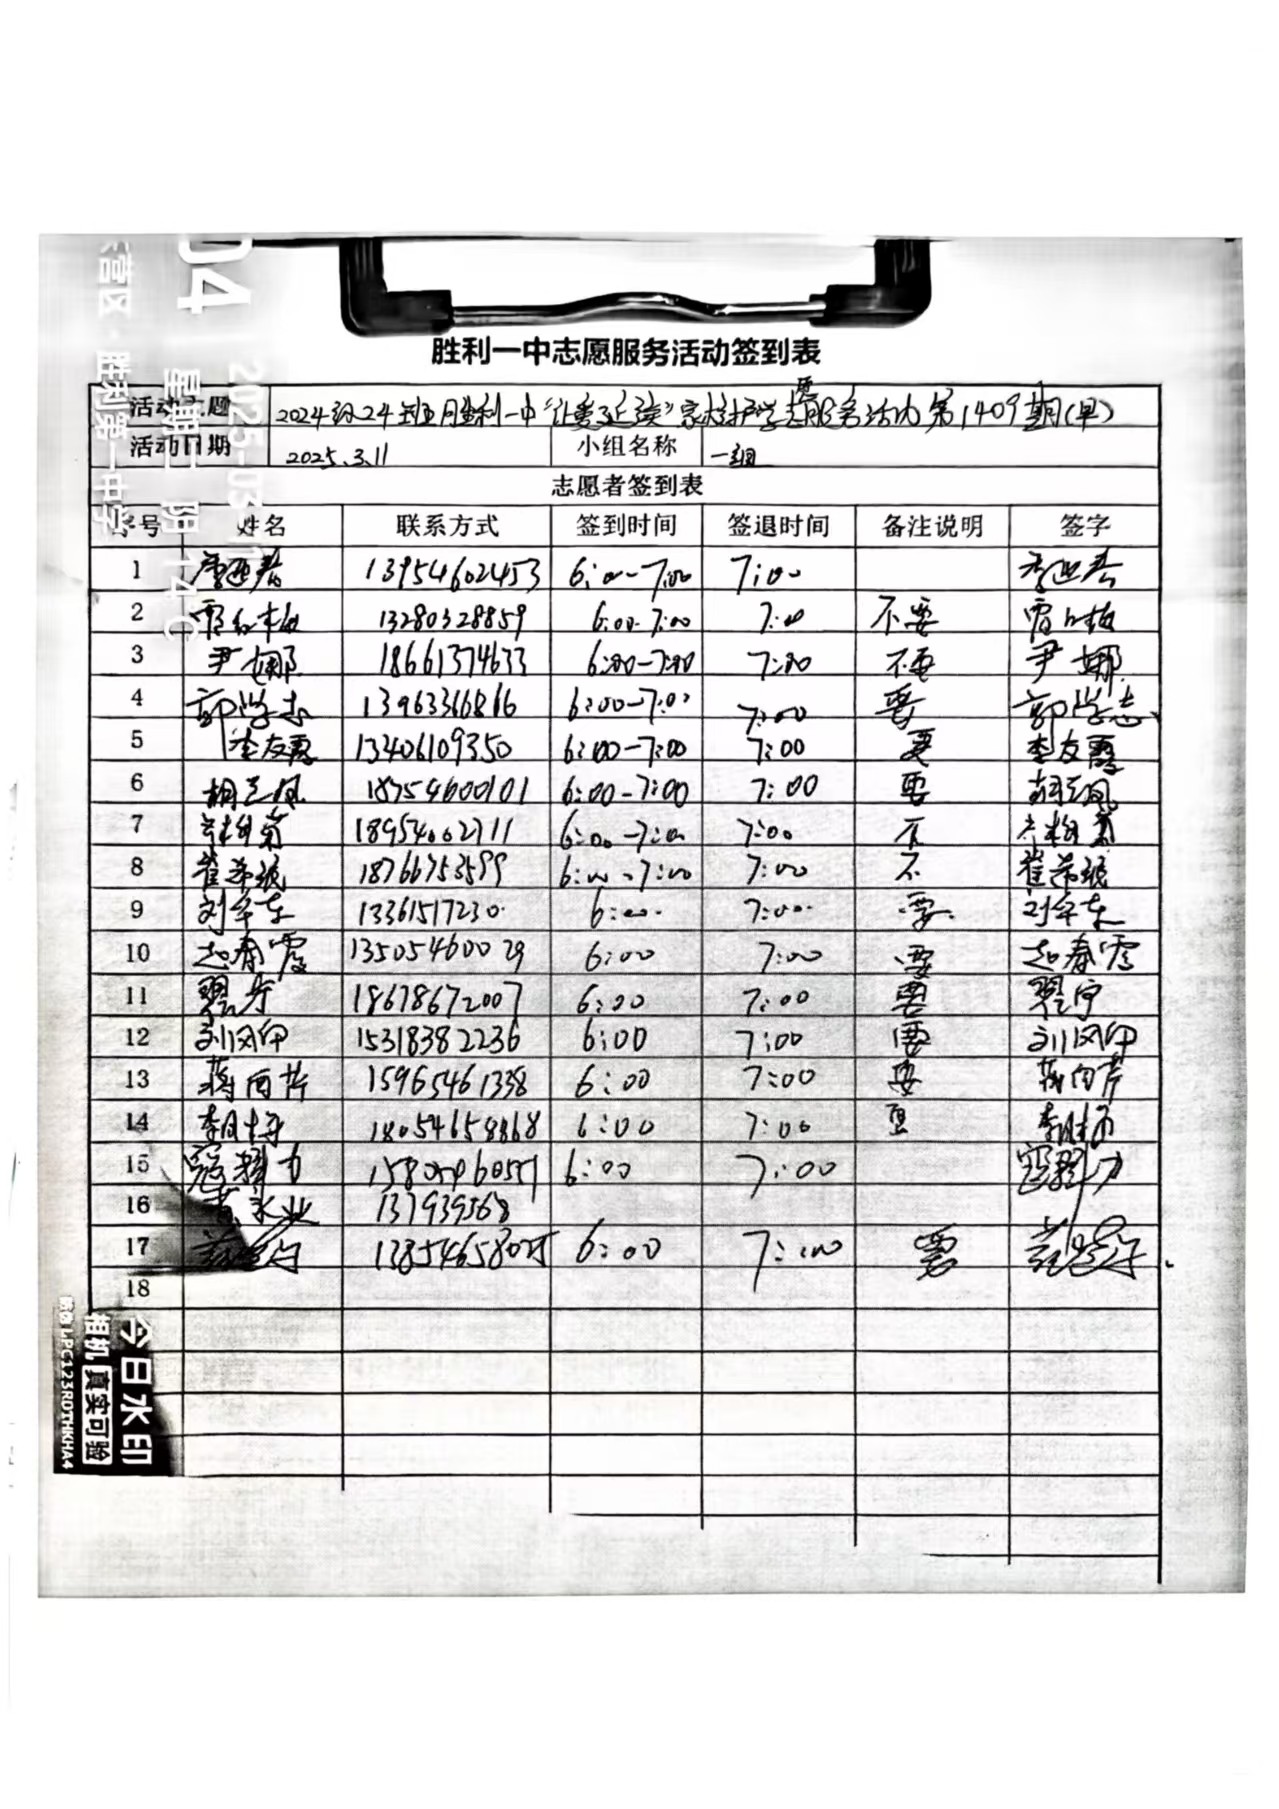 胜利一中志愿服务活动签到表
活动主题 2024级24班胜利一中"让爱延续"家长护学志愿服务活动第1409期(早)
活动日期 2025.3.11 小组名称 一组
志愿者签到表
序号 姓名 联系方式 签到时间 签退时间 备注说明 签字
1 13954602453 6:00-7:00 7:00
2 雷红梅 13280328859 6:00-7:00 7:00 不要 雷红梅
3 尹娜 18661374633 6:00-7:00 7:00 不要 尹娜
4 郭学志 13963366816 6:00-7:00 7:00 要 郭学志
5 李友霞 13406109350 6:00-7:00 7:00 要 李友霞
6 胡云凤 18754600101 6:00-7:00 7:00 要 胡云凤
7 18954602711 6:00-7:00 7:00 不
8 崔 18766753599 6:00-7:00 7:00 不 崔
9 刘军东 13361517230 6:00 7:00 要 刘军东
10 赵春霞 13505460029 6:00 7:00 要 赵春霞
11 翟宁 18678672007 6:00 7:00 要 翟宁
12 刘凤印 15318382236 6:00 7:00 要 刘凤印
13 蒋 15965461338 6:00 7:00 要 蒋
14 李胜 18054658868 6:00 7:00 要 李胜
15 寇 6:00 7:00 寇
16 永业 137939568
17 6:00 7:00 要
18
04
2025-03-11
星期二 阴 14°C
东营区·胜利第一中学
今日水印
相机 真实可验
防伪 LPC123RDTHKHA4